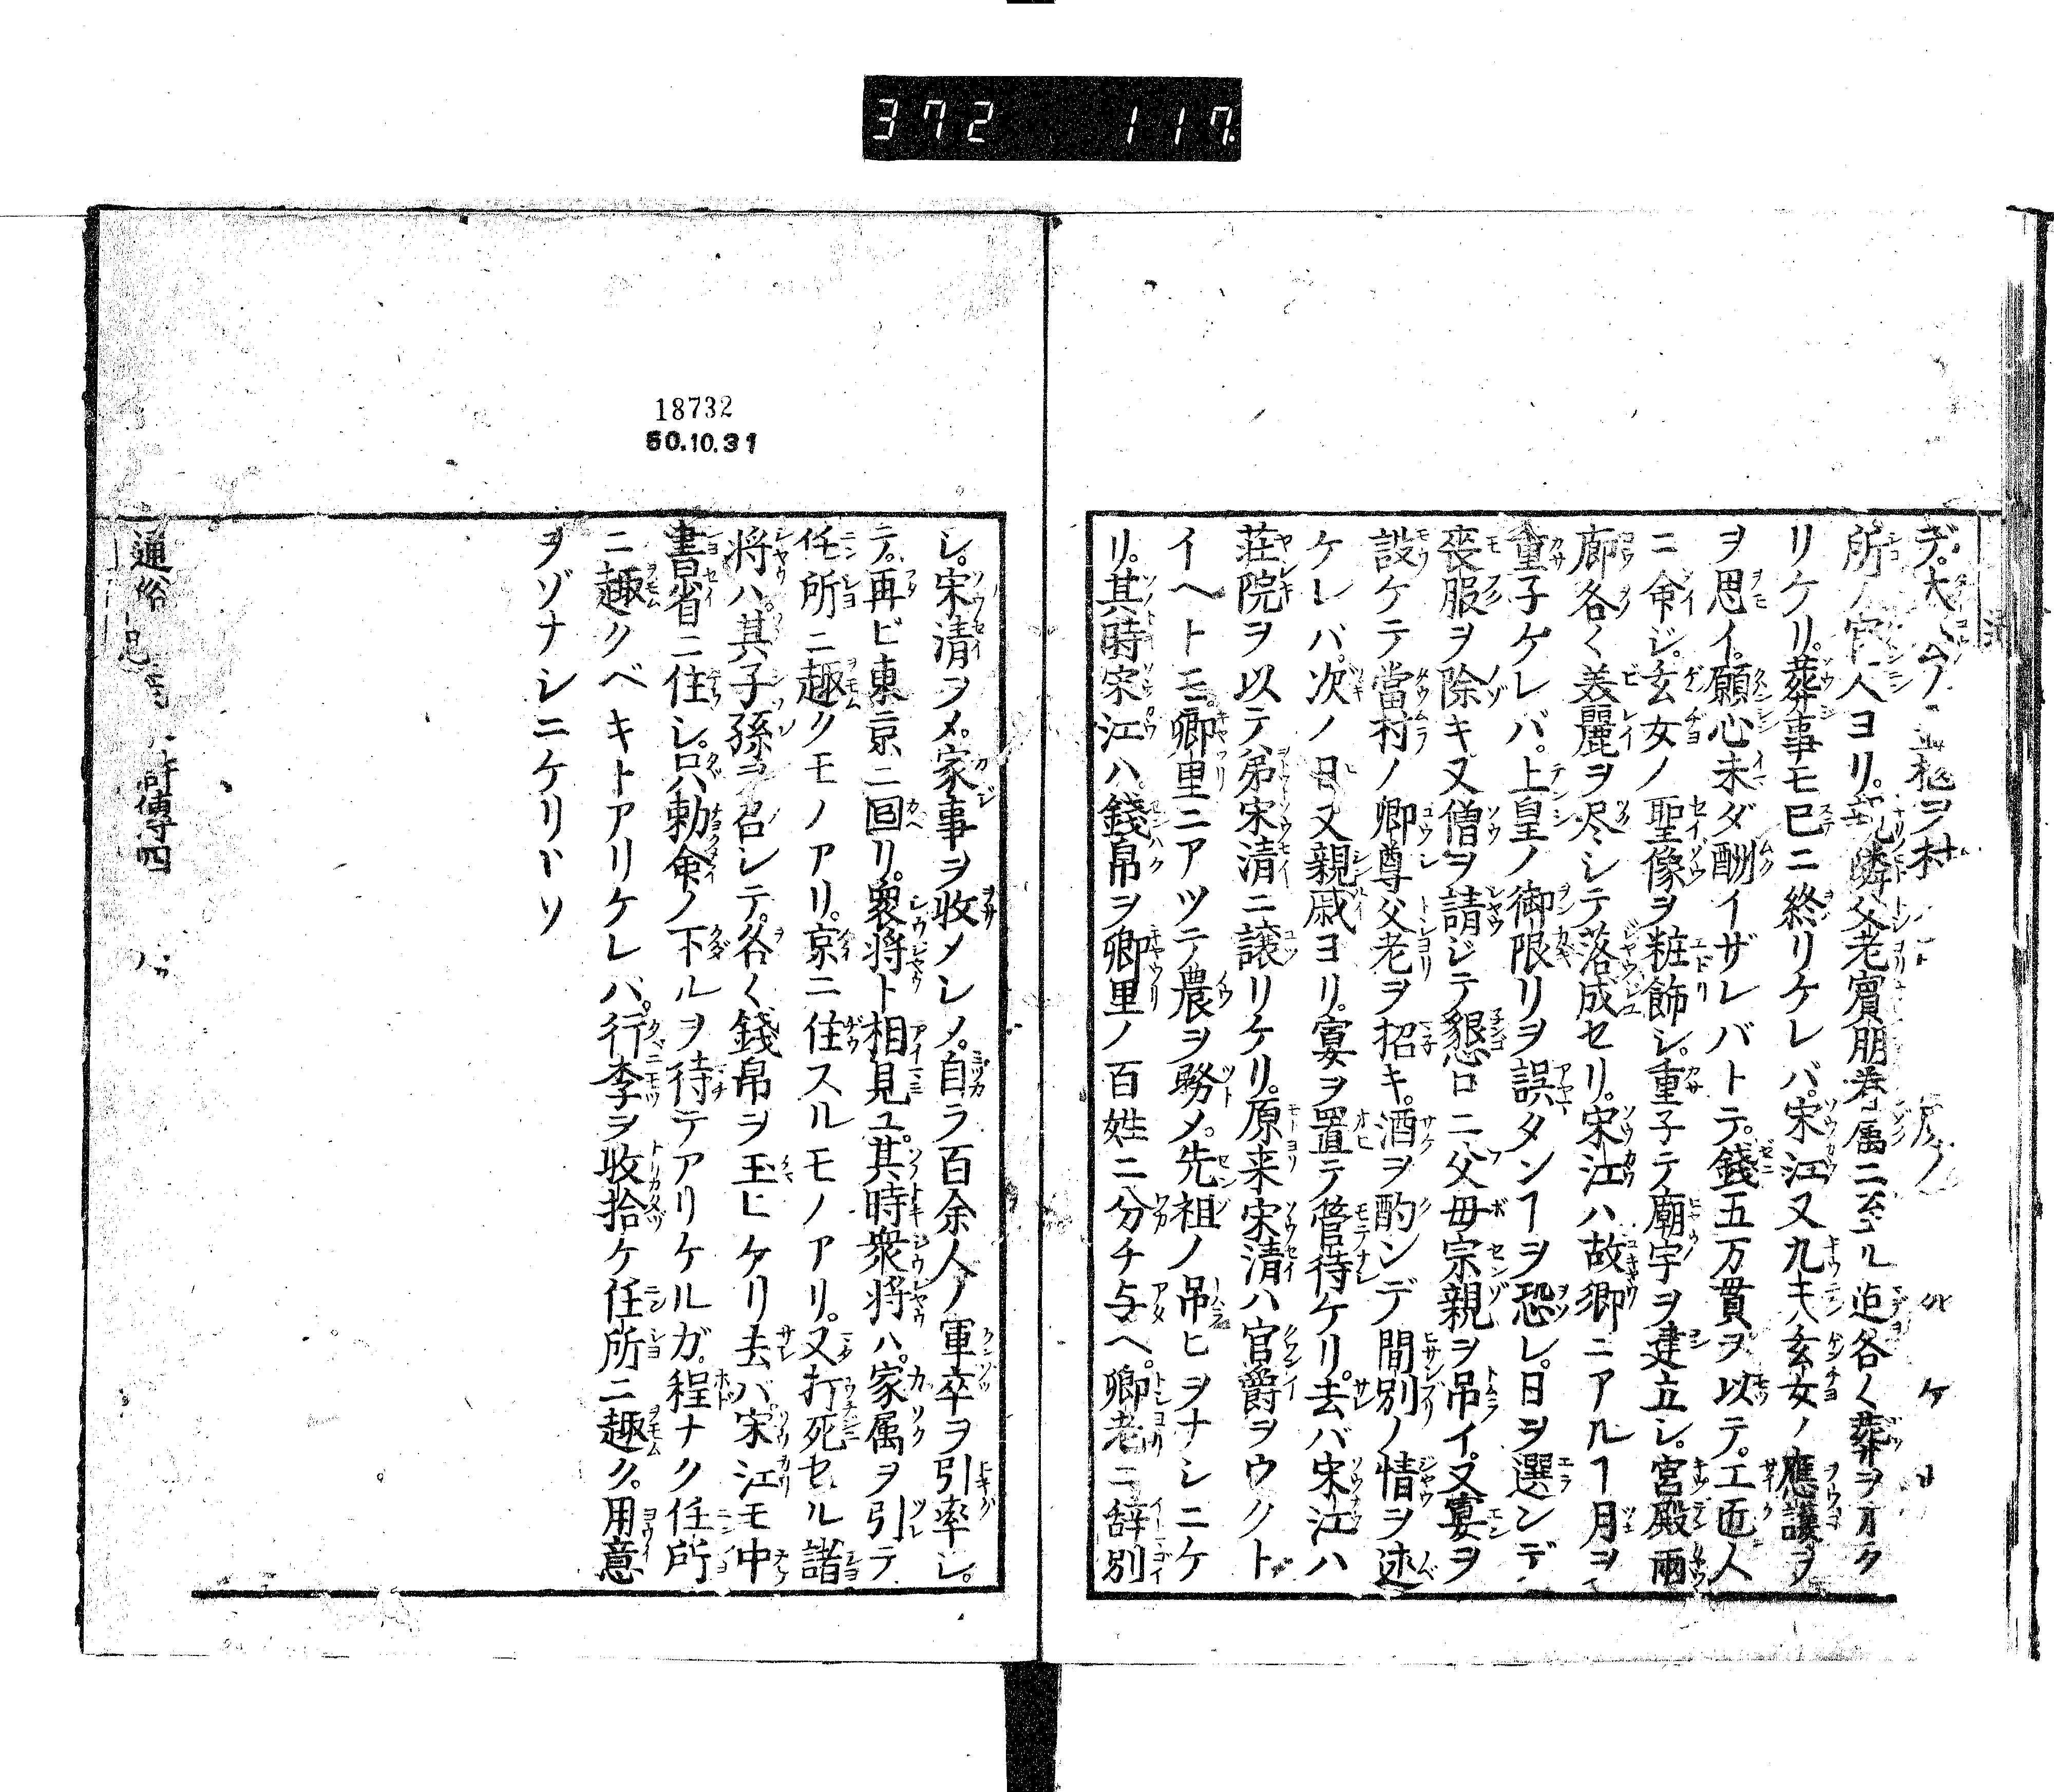 372 117
デ大
所ノ官人ヨリ隣父老賓朋眷属ニ至ル迠各〱葬ヲオク
リケリ。葬事モ已ニ終リケレバ。宋江又九天玄女ノ應護ヲ
ヲ思イ。願心未ダ酬イザレバトテ。錢五万貫ヲ以テ。工匠人
ニ命ジ。玄女ノ聖像ヲ粧飾シ。重子テ廟宇ヲ建立シ。宮殿兩
廊各〱美麗ヲ尽シテ落成セリ。宋江ハ故郷ニアルヿ月ヲ
重子ケレバ。上皇ノ御限リヲ誤タンヿヲ恐レ。日ヲ選ンデ
喪服ヲ除キ又僧ヲ請ジテ懇ロニ父母宗親ヲ吊イ。又宴ヲ
設ケテ當村ノ郷尊父老ヲ招キ。酒ヲ酌ンデ間別ノ情ヲ述
ケレバ。次ノ日又親戚ヨリ。宴ヲ置テ管待ケリ。去バ宋江ハ
荘院ヲ以テ弟宋清ニ譲リケリ。原来宋清ハ官爵ヲウクト
イヘトモ。郷里ニアツテ農ヲ務メ。先祖ノ吊ヒヲナシニケ
リ。其時宋江ハ。錢帛ヲ郷里ノ百姓ニ分チ与ヘ。郷老ニ辞別
シ。宋清ヲメ。家事ヲ收メシメ。自ラ百余人ノ軍卒ヲ引率シ。
テ。再ビ東京ニ回リ。衆将ト相見ユ。其時衆将ハ。家属ヲ引テ
任所ニ趣クモノアリ。京ニ住スルモノアリ。又打死セル諸
将ハ。其子孫ヲ召シテ。各〱錢帛ヲ玉ヒケリ去バ。宋江モ中
書省ニ住シ。只勅命ノ下ルヲ待テアリケルガ。程ナク任所
ニ趣クベキトアリケレバ。行李ヲ收拾ケ任所ニ趣ク。用意
ヲゾナシニケリ
通俗忠 傳四
18732
50.10.31